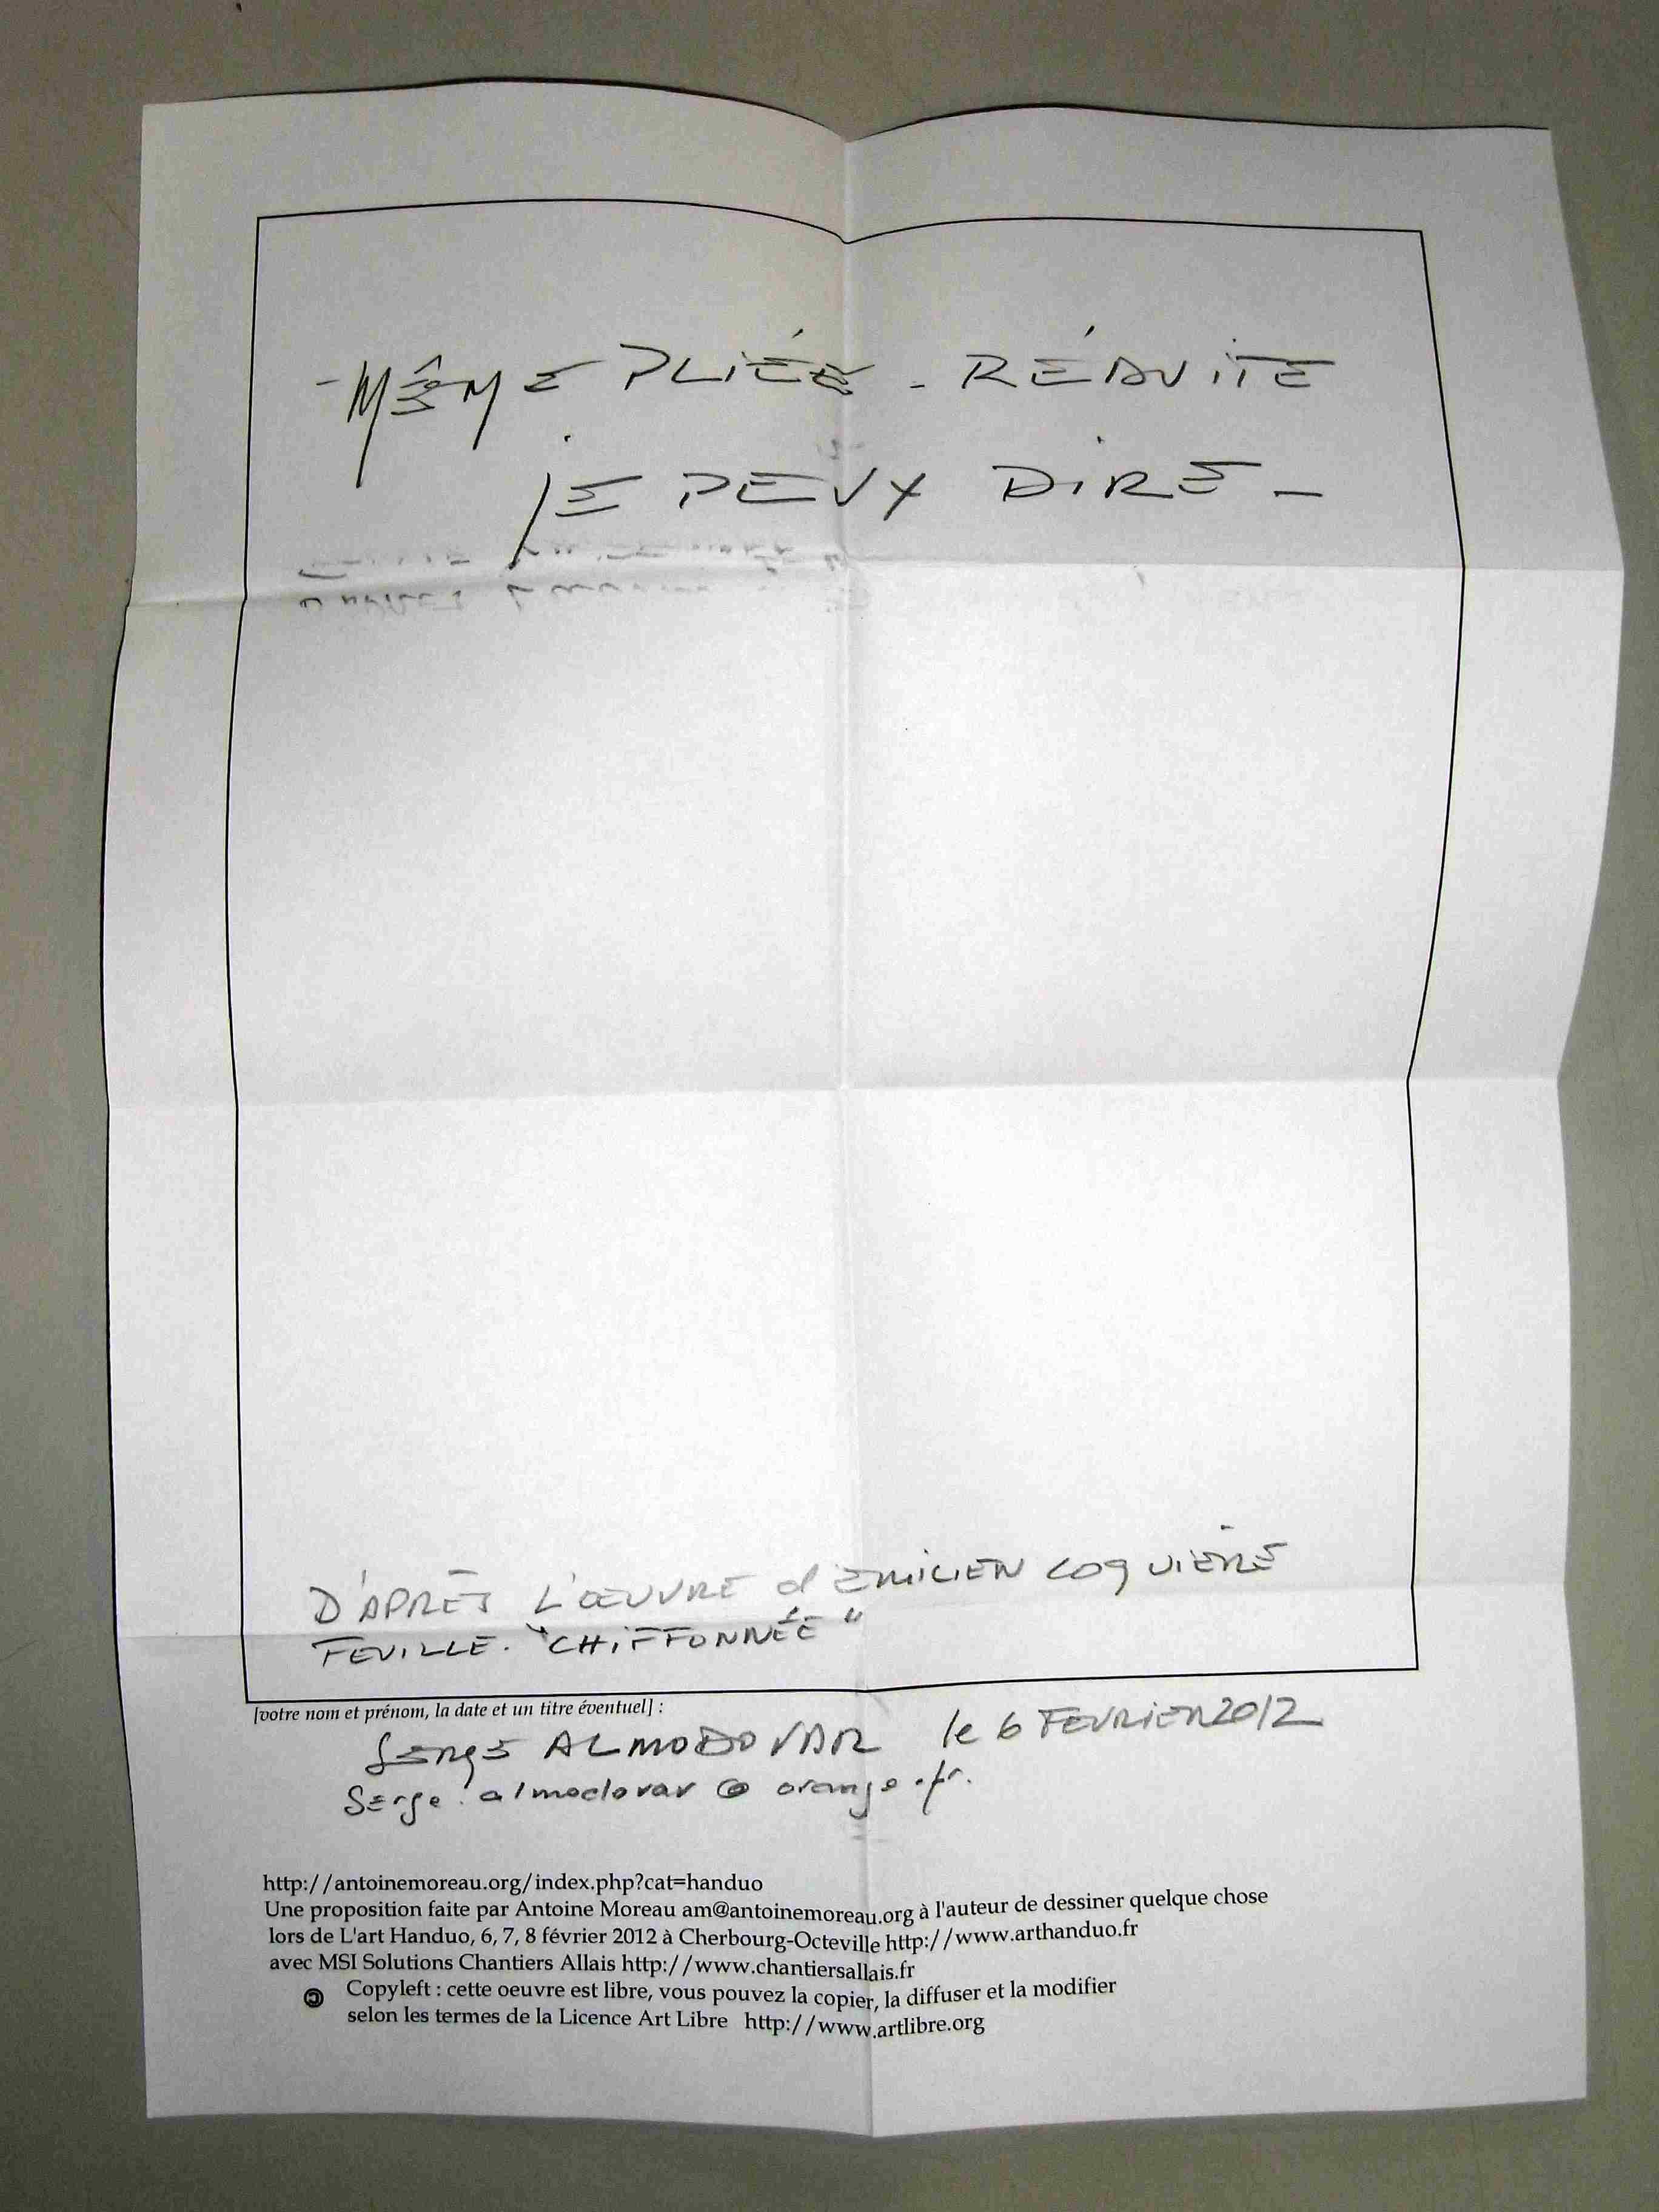 - MÊME PLIÉE - RÉDUITE
jE PEUX DIRE -
D'APRÈS L'ŒUVRE d'EMILIEN COQUIERE
FEUILLE. "CHIFFONNÉE"
[votre nom et prénom, la date et un titre éventuel] :
Serge ALMODOVAR le 6 FEVRIER 2012
Serge.almodovar @ orange.fr.
http://antoinemoreau.org/index.php?cat=handuo
Une proposition faite par Antoine Moreau am@antoinemoreau.org à l'auteur de dessiner quelque chose
lors de L'art Handuo, 6, 7, 8 février 2012 à Cherbourg-Octeville http://www.arthanduo.fr
avec MSI Solutions Chantiers Allais http://www.chantiersallais.fr
Copyleft : cette oeuvre est libre, vous pouvez la copier, la diffuser et la modifier
selon les termes de la Licence Art Libre http://www.artlibre.org